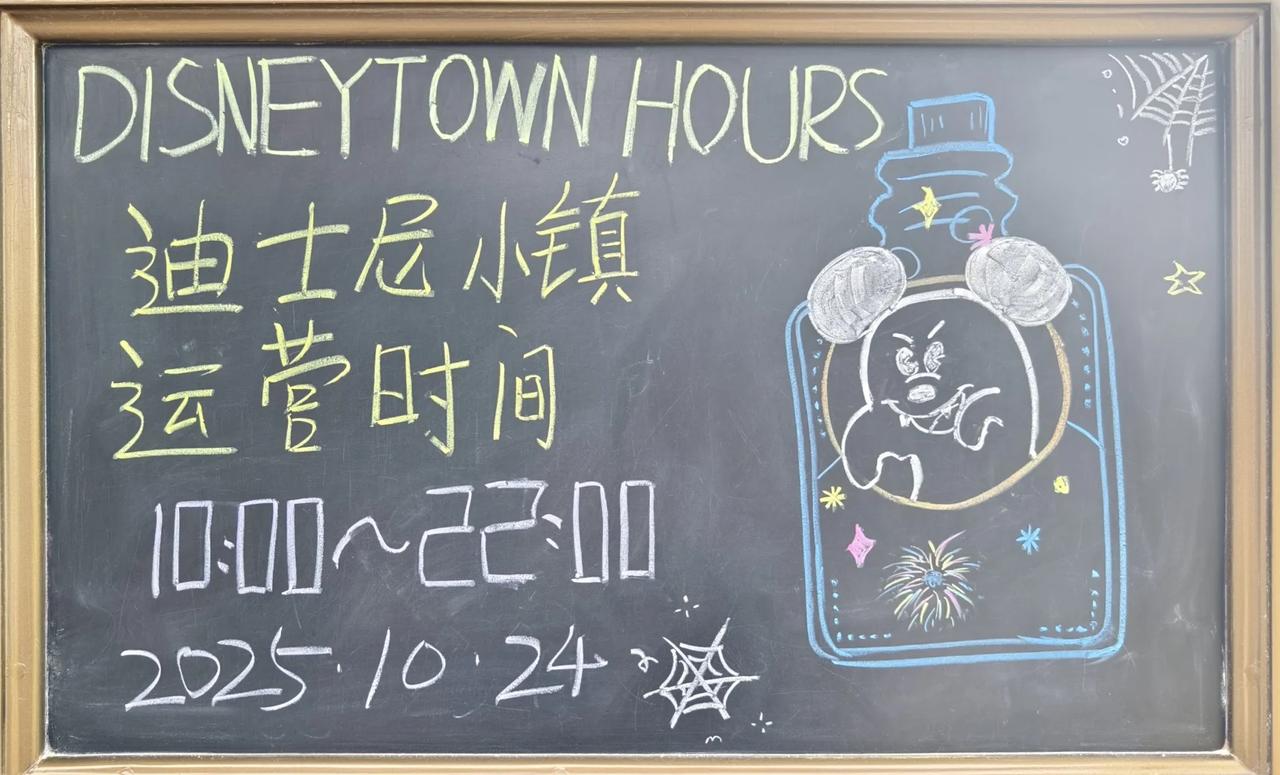 DISNEYTOWN HOURS
迪士尼小镇
运营时间
10:00~22:00
2025.10.24